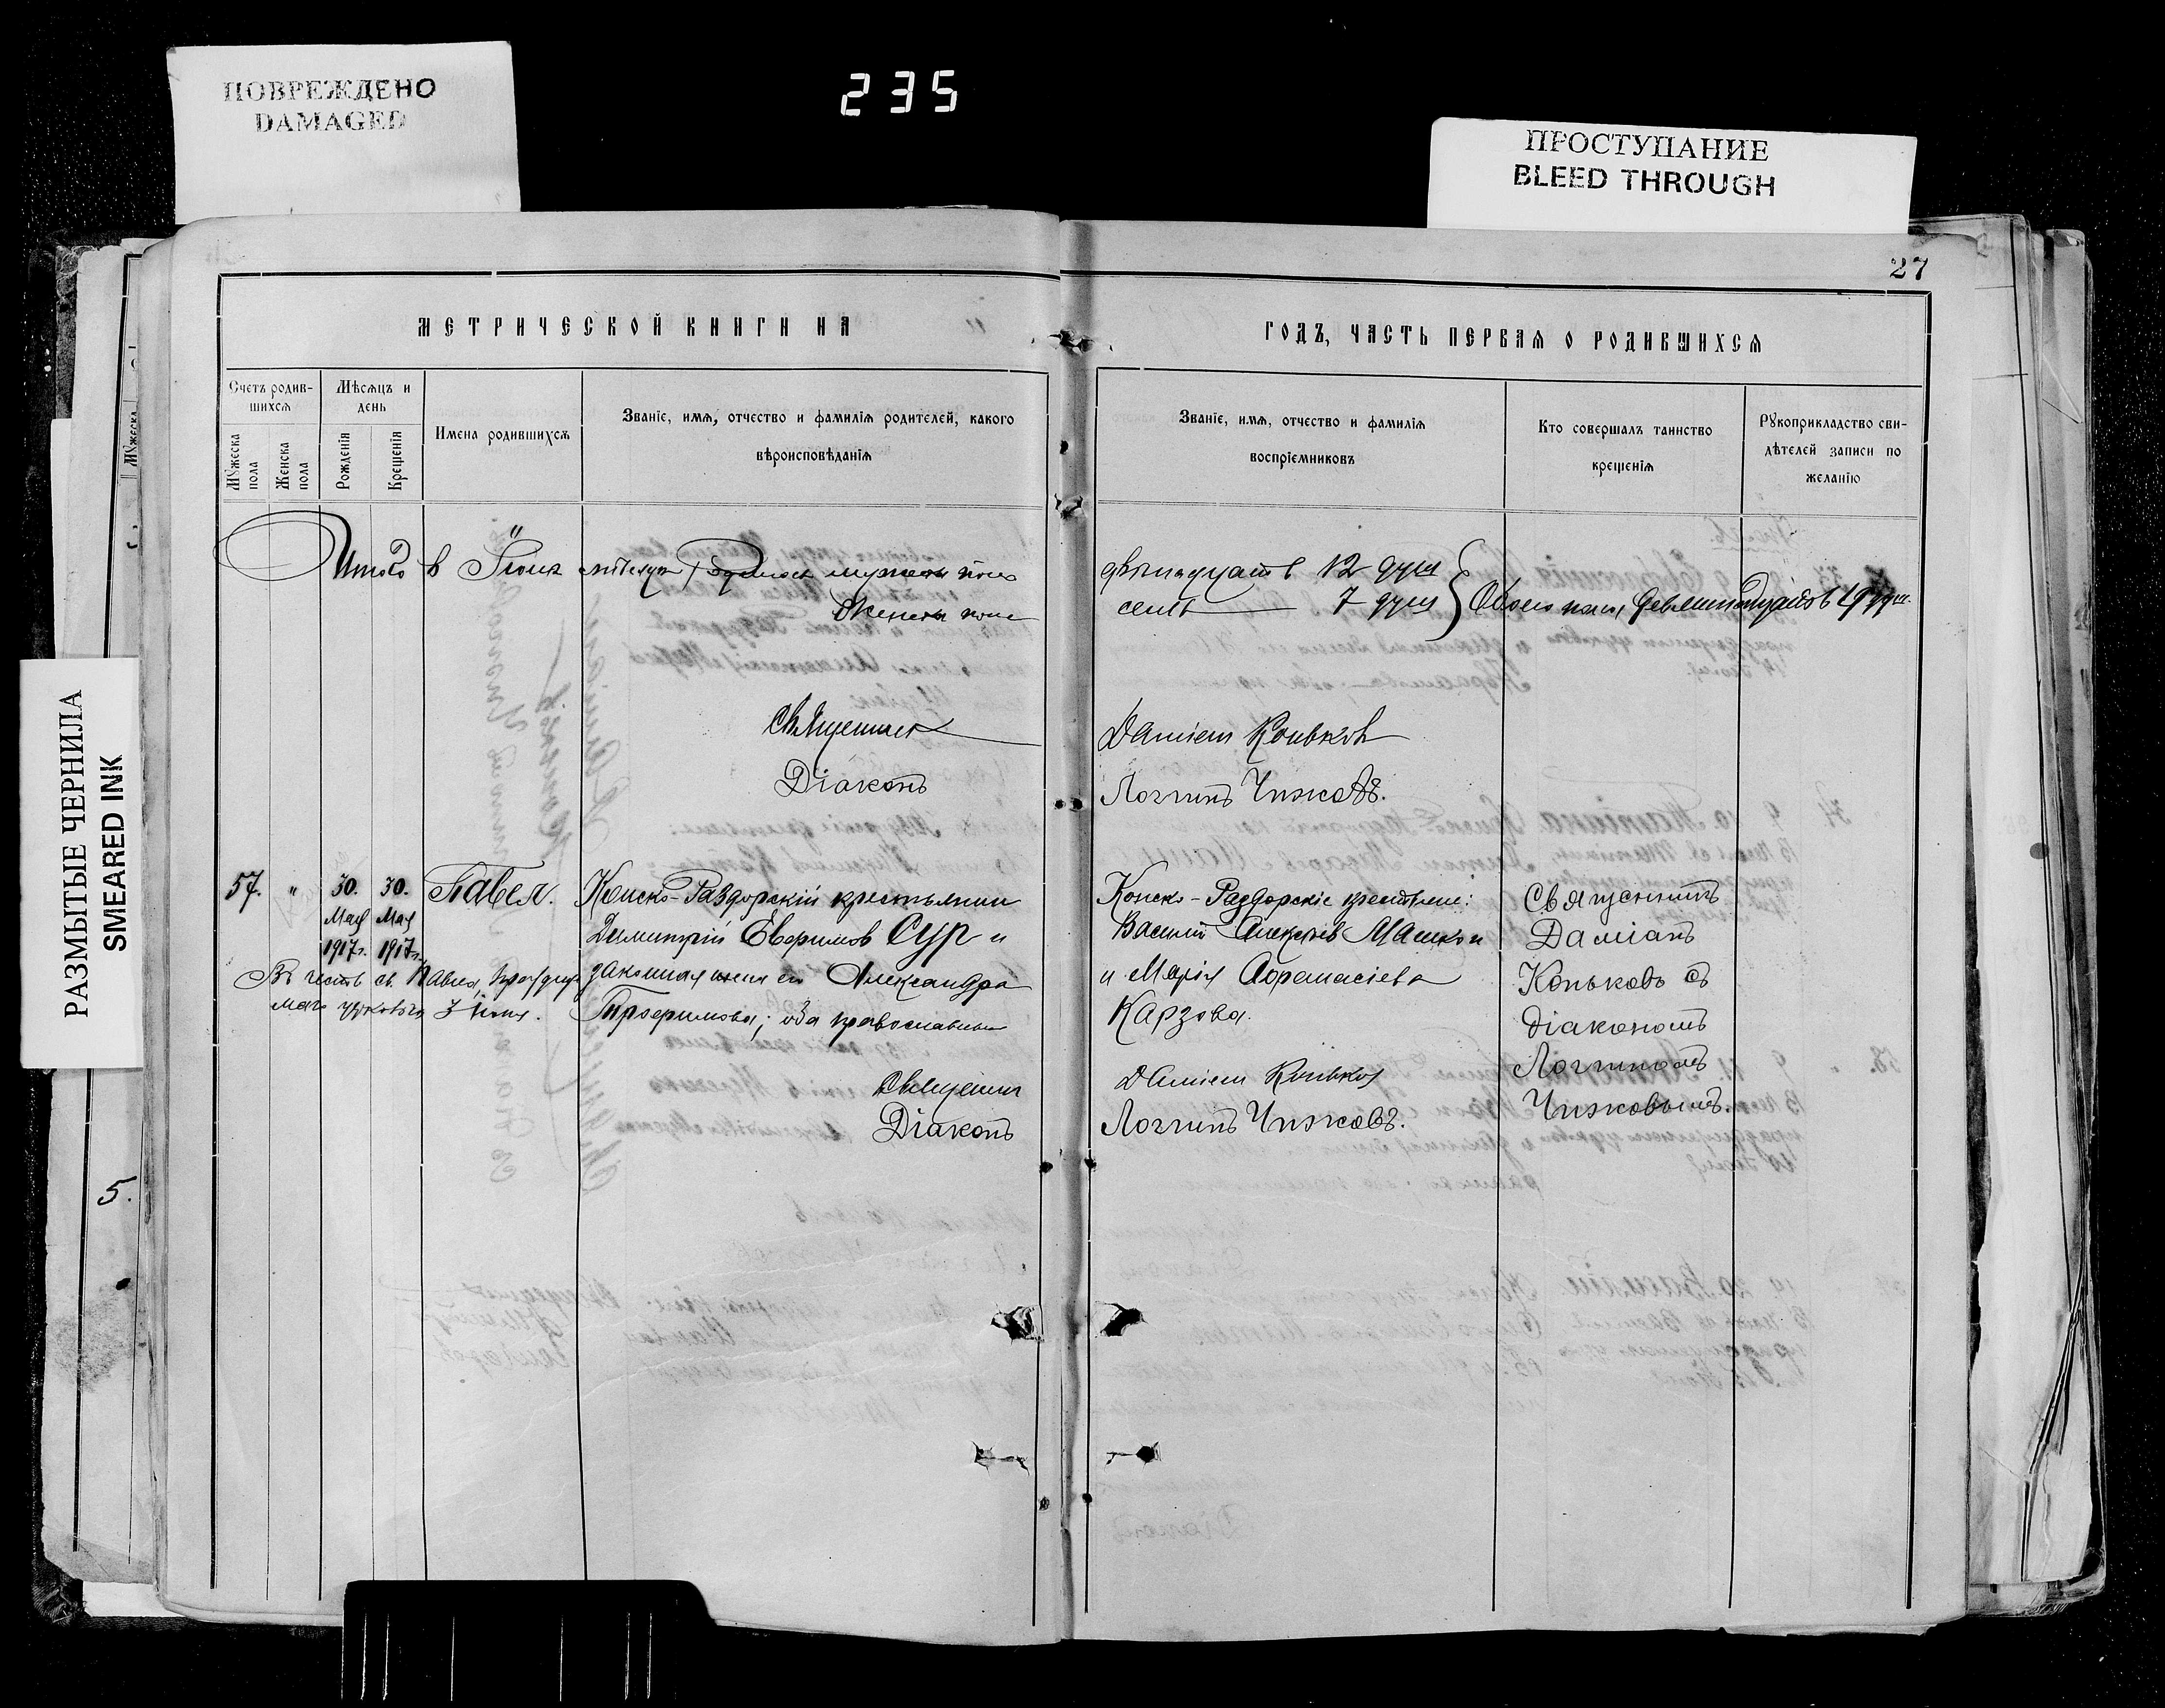 ПОВРЕЖДЕНО
DAMAGED
235
ПРОСТУПАНИЕ
BLEED THROUGH
РАЗМЫТЫЕ ЧЕРНИЛА
SMEARED INK
27
МЕТРИЧЕСКОЙ КНИГИ НА
ГОДЪ, ЧАСТЬ ПЕРВАЯ О РОДИВШИХСЯ
Счетъ родив-
шихся
Мужеска
пола
Женска
пола
Мѣсяцъ и
день
Рожденія
Крещенія
Имена родившихся
Званіе, имя, отчество и фамилія родителей, какого
вѣроисповѣданія
Званіе, имя, отчество и фамилія
воспріемниковъ
Кто совершалъ таинство
крещенія
Рукоприкладство сви-
дѣтелей записи по
желанію
Итого в Іюнѣ мѣсяцѣ родилось мужеска пола
двѣнадцать 12 душ
Женска пола
семь 7 душ
Обоего пола девятнадцать 19 душ.
Священник
Даміан Коньков
Діаконъ
Логгинъ Чижовъ.
57. " 30. 30. Павел.
Мая Мая
1917г. 1917г.
Въ честь св. Павла, празднуе-
маго церковью 3 іюня.
Конско-Раздорскій крестьянин
Димитрій Евфимов Сур и
законная жена его Александра
Трофимова; оба православные
Священник
Діаконъ
Конско-Раздорскіе крестьяне:
Василій Алексѣев Машко и
и Марія Афанасіева
Карзова.
Даміан Коньков
Логгинъ Чижовъ.
Священникъ
Даміанъ
Коньковъ съ
діакономъ
Логгиномъ
Чижовымъ.
5.